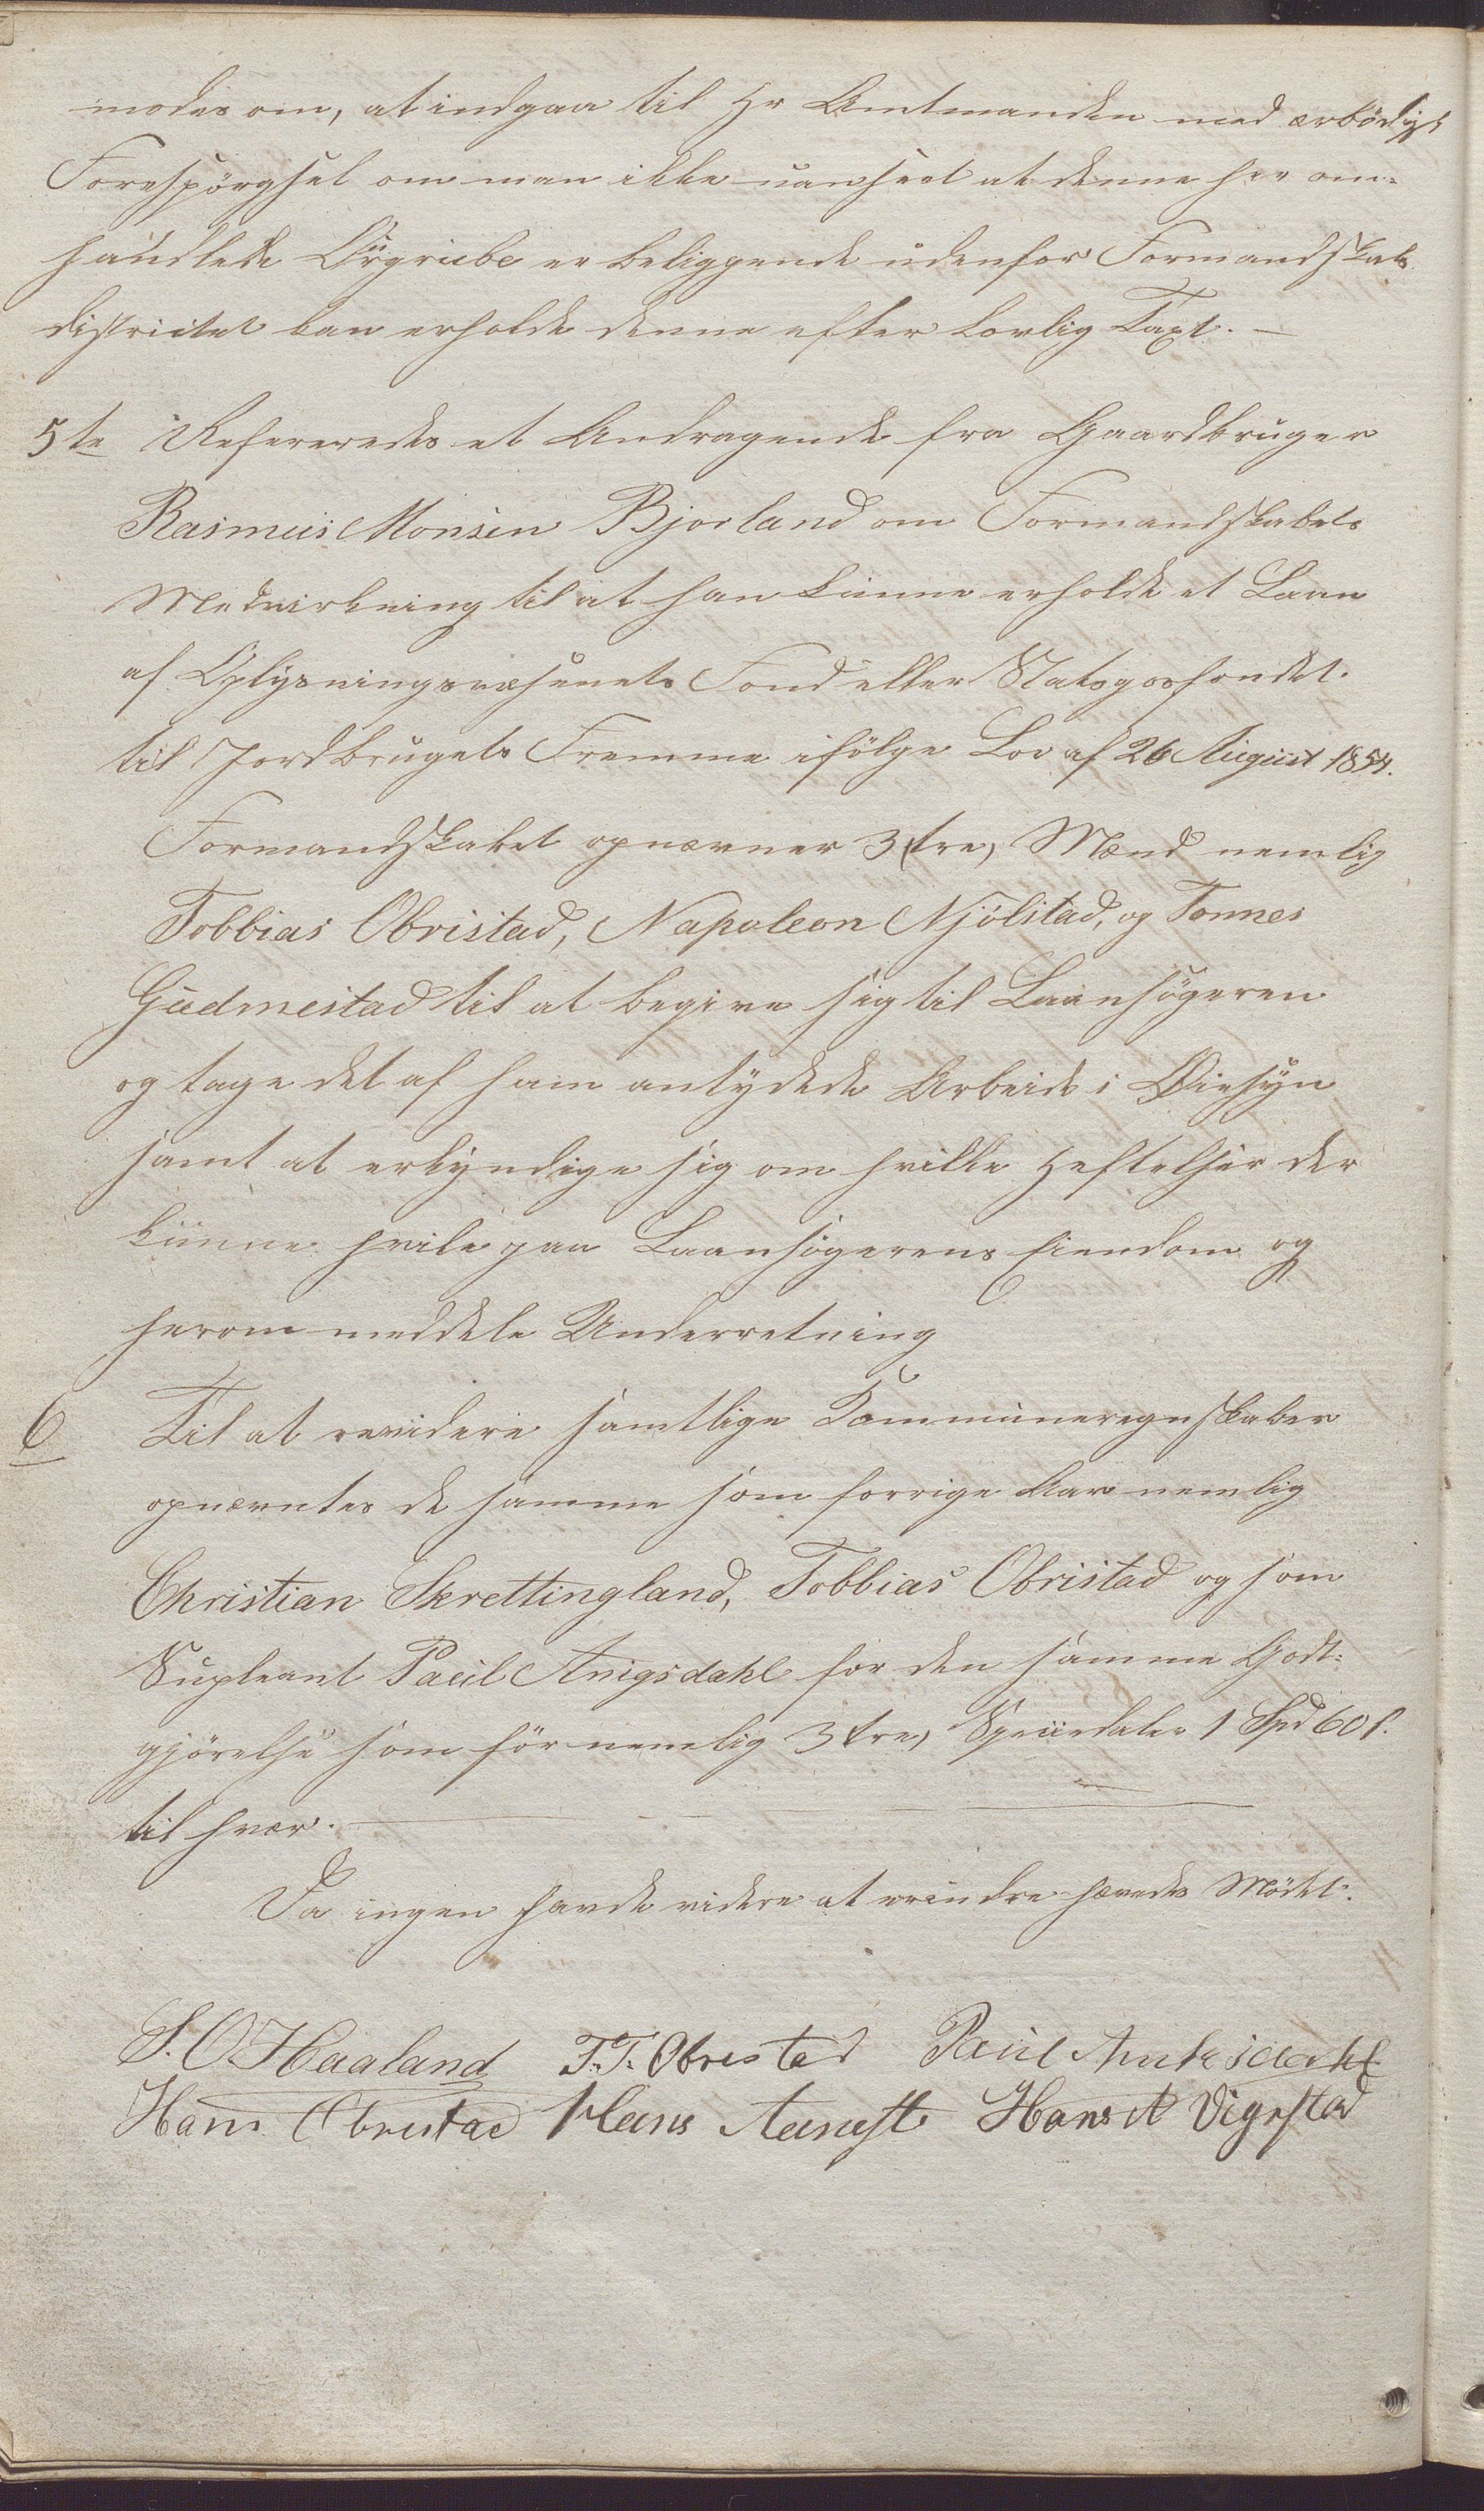 modes om, at indgaa til Hr Amtmanden med ærbödigt
Forespörgsel om man ikke uanseet at denne her om-
handlede Örgrube er beliggende udenfor Formandskabs
districtet kan erholde denne efter lovlig Taxt. —
5te Refereredes et Andragende fra Gaardbruger
Rasmus Monsen Bjorland om Formandskabets
Medvirkning til at han kunne erholde et Laan
af Oplysningsvæsenets Fond eller Statsgodsfondet
til Jordbrugets Fremme ifölge Lov af 26 August 1854.
Formandskabet opnævner 3 (tre) Mænd nemlig
Tobbias Obristad, Napoleon Njölstad, og Tonnes
Gudmestad til at begive sig til Laansögeren
og tage det af ham antydede Arbeide i Øiesyn
samt at erkyndige sig om hvilke Heftelser der
kunne hvile paa Laansögerens Eiendom og
herom meddele Underretning
6 Til at revidere samtlige Kommuneregnskaber
opnævntes de samme som forrige Aar nemlig
Christian Skrettingland, Tobbias Obristad og som
Supleant Paul Anigsdahl for den samme Godt-
gjörelse som för nemlig 3 (tre) Speciedaler 1 Spd 60 s.
til hver.
Da ingen havde videre at erindre hævedes Mödet.
S. O. Haaland T. T. Obrestad Paul Anksdahl
Hans Obrestad Hans Aanest Hans A Vigestad